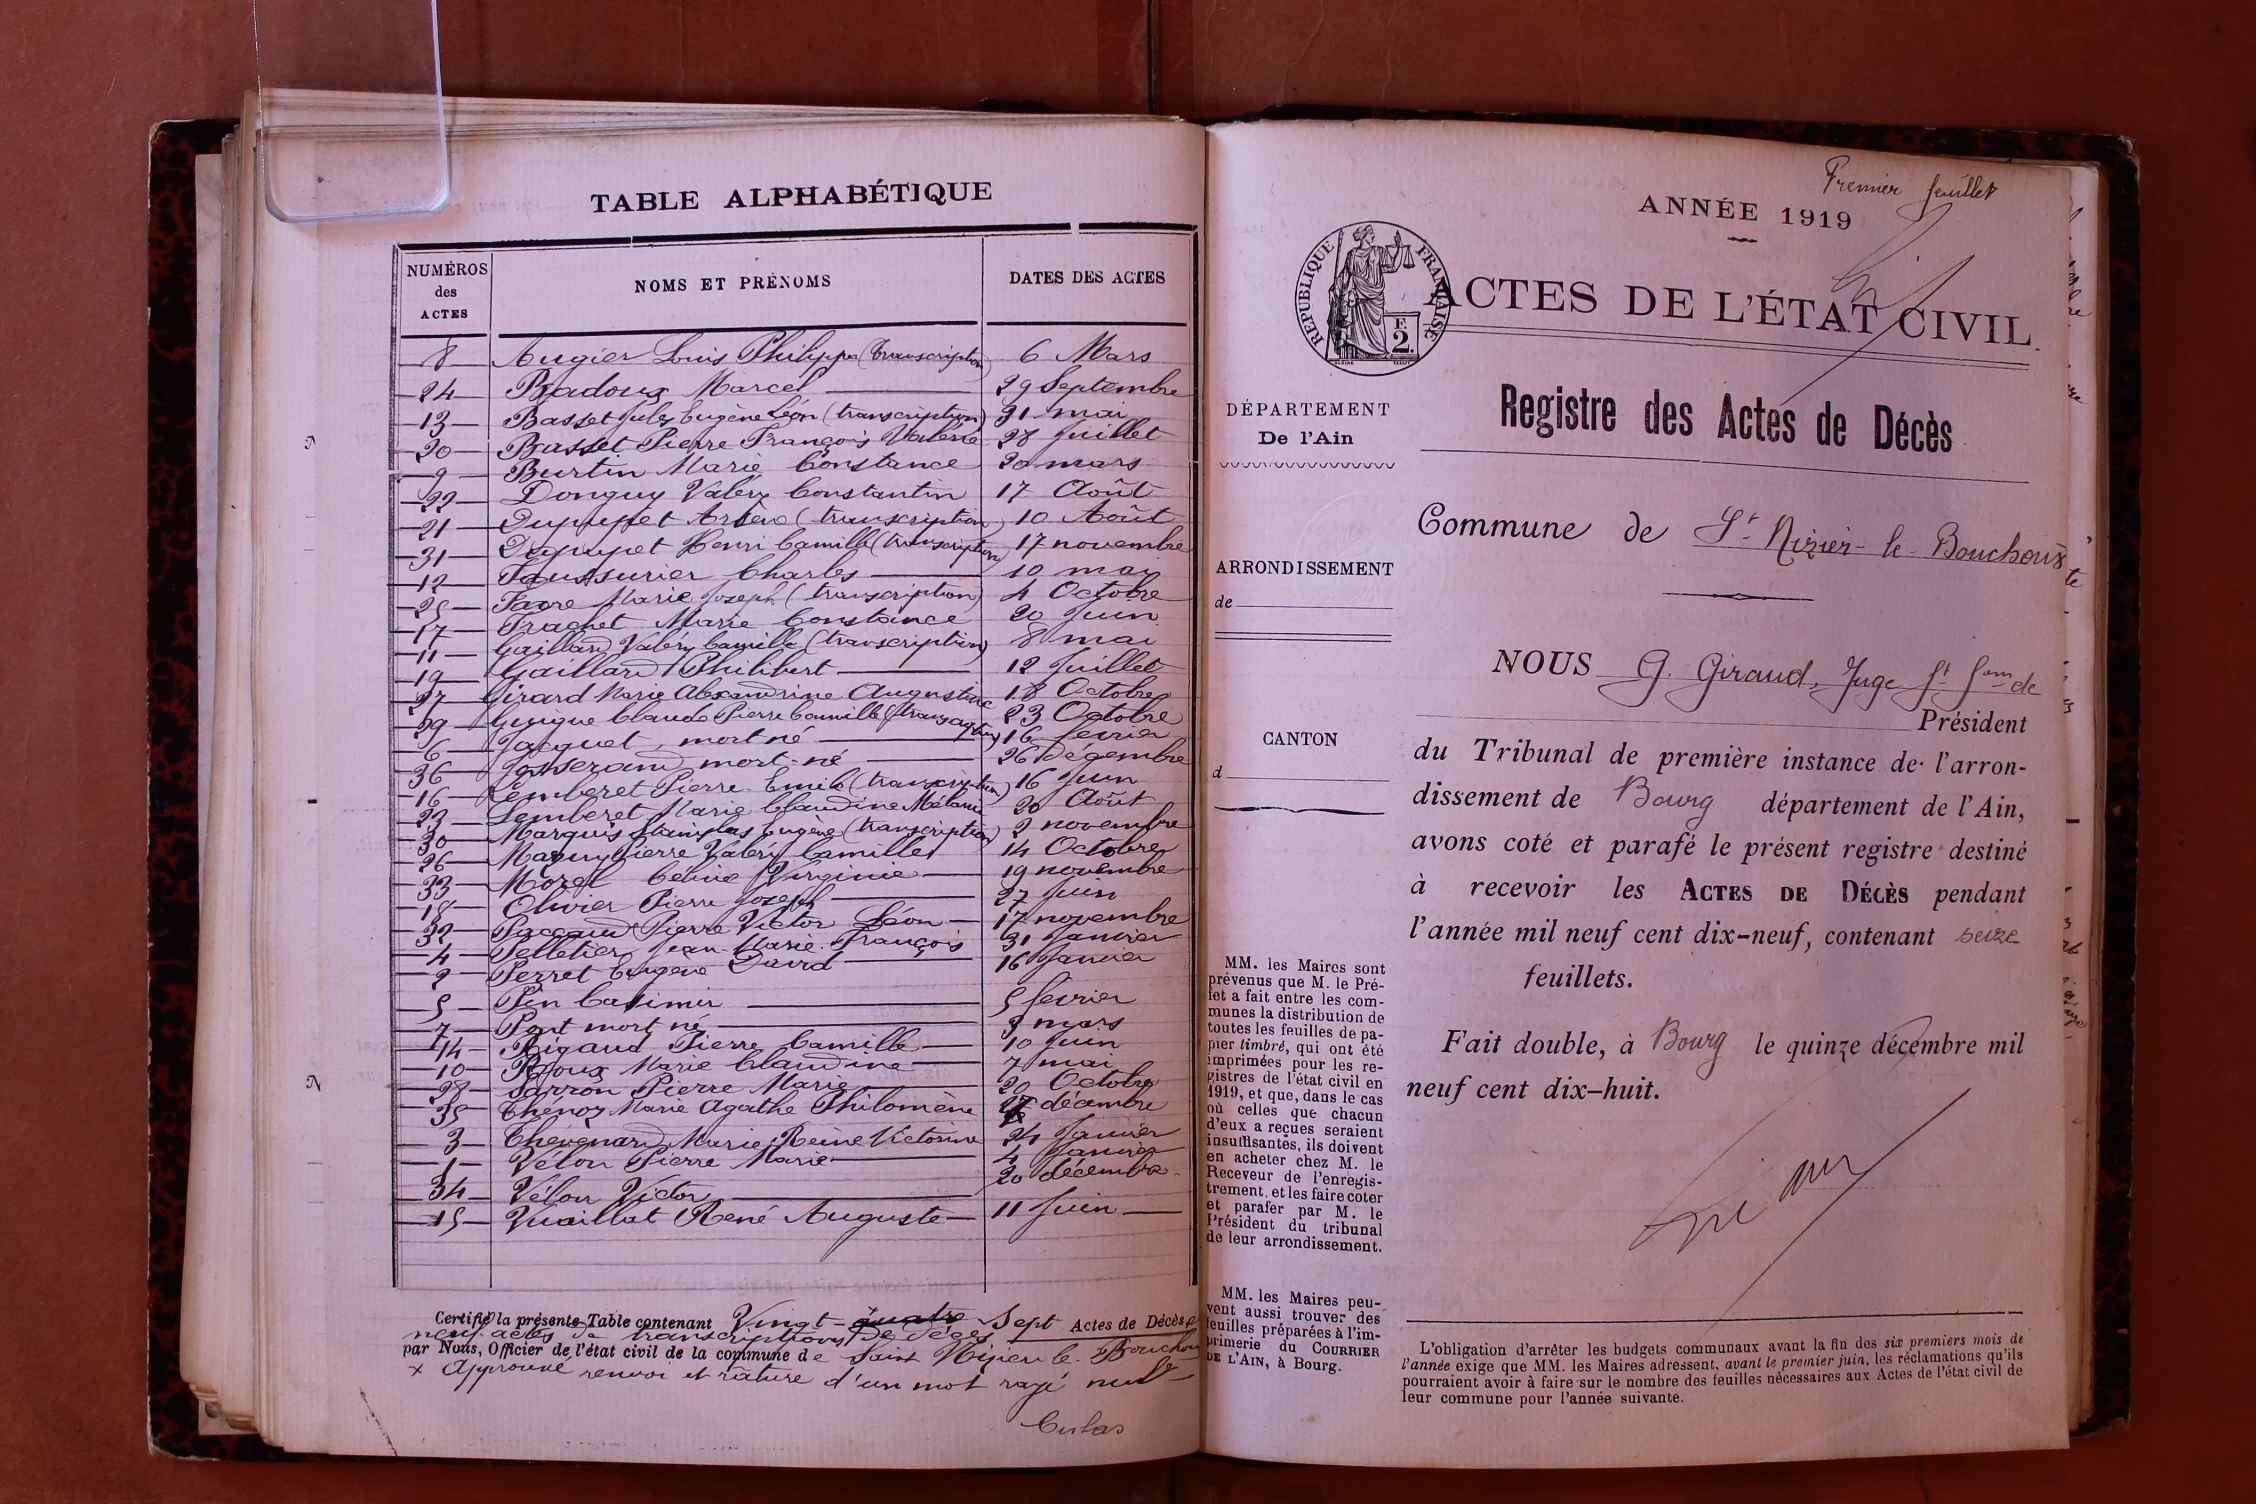 TABLE ALPHABÉTIQUE
NUMÉROS des ACTES NOMS ET PRÉNOMS DATES DES ACTES
8 Augier Louis Philippe (transcription) 6 Mars
24 Badoux Marcel 29 Septembre
13 Basset Jules Eugène Léon (transcription) 31 mai
20 Basset Pierre François Valérie 28 Juillet
9 Burtin Marie Constance 20 mars
22 Donguy Valéry Constantin 17 Août
21 Dupupet Arsène (transcription) 10 Août
31 Dupupet Henri Camille (transcription) 17 novembre
12 Faussurier Charles 10 mai
25 Favre Marie Joseph (transcription) 4 Octobre
17 Frachet Marie Constance 20 Juin
11 Gaillard Valéry Camille (transcription) 8 mai
19 Gaillard Philibert 12 Juillet
27 Girard Marie Alexandrine Augustine 18 Octobre
29 Guigue Claude Pierre Camille (transcription) 23 Octobre
6 Jacquet, mort né 16 fevrier
36 Josserand mort-né 26 Décembre
16 Lemberet Pierre Emile (transcription) 16 Juin
23 Lemberet Marie Claudine Mélanie 20 Août
30 Marquis Stanislas Eugène (transcription) 2 novembre
26 Mazuy Pierre Valéry Camille 14 Octobre
33 Morel Celine Virginie 19 novembre
18 Olivier Pierre Joseph 27 Juin
32 Paccaud Pierre Victor Léon 17 novembre
4 Pelletier Jean-Marie François 31 Janvier
2 Perret Eugène David 16 Janvier
5 Pin Casimir 5 fevrier
7 Pont mort né 3 mars
14 Rigaud Pierre Camille 10 Juin
10 Roux Marie Claudine 7 mai
28 Sarron Pierre Marie 20 Octobre
35 Thenoz Marie Agathe Philomène décembre
3 Thévenard Marie Reine Victorine 24 Janvier
1 Vélon Pierre Marie 4 Janvier
34 Vélon Victor 20 décembre
15 Vuaillat René Auguste 11 Juin
Certifié la présente Table contenant Vingt-quatre Sept Actes de Décès et
neuf actes de transcriptions de décès
par Nous, Officier de l'état civil de la commune de Saint Nizier le Bouchoux
x Approuvé renvoi et râture d'un mot rayé nul
Premier feuillet
ANNÉE 1919
RÉPUBLIQUE FRANÇAISE
2
ACTES DE L'ÉTAT CIVIL
Registre des Actes de Décès
DÉPARTEMENT
De l'Ain
Commune de St Nizier-le-Bouchoux
ARRONDISSEMENT
de
CANTON
d
NOUS G. Giraud, Juge ft fons de
Président
du Tribunal de première instance de l'arron-
dissement de Bourg département de l'Ain,
avons coté et parafé le présent registre destiné
à recevoir les ACTES DE DÉCÈS pendant
l'année mil neuf cent dix-neuf, contenant seize
feuillets.
Fait double, à Bourg le quinze décembre mil
neuf cent dix-huit.
MM. les Maires sont
prévenus que M. le Pré-
fet a fait entre les com-
munes la distribution de
toutes les feuilles de pa-
pier timbré, qui ont été
imprimées pour les re-
gistres de l'état civil en
1919, et que, dans le cas
où celles que chacun
d'eux a reçues seraient
insuffisantes, ils doivent
en acheter chez M. le
Receveur de l'enregis-
trement, et les faire coter
et parafer par M. le
Président du tribunal
de leur arrondissement.
MM. les Maires peu-
vent aussi trouver des
feuilles préparées à l'im-
primerie du COURRIER
DE L'AIN, à Bourg.
L'obligation d'arrêter les budgets communaux avant la fin des six premiers mois de
l'année exige que MM. les Maires adressent, avant le premier juin, les réclamations qu'ils
pourraient avoir à faire sur le nombre des feuilles nécessaires aux Actes de l'état civil de
leur commune pour l'année suivante.